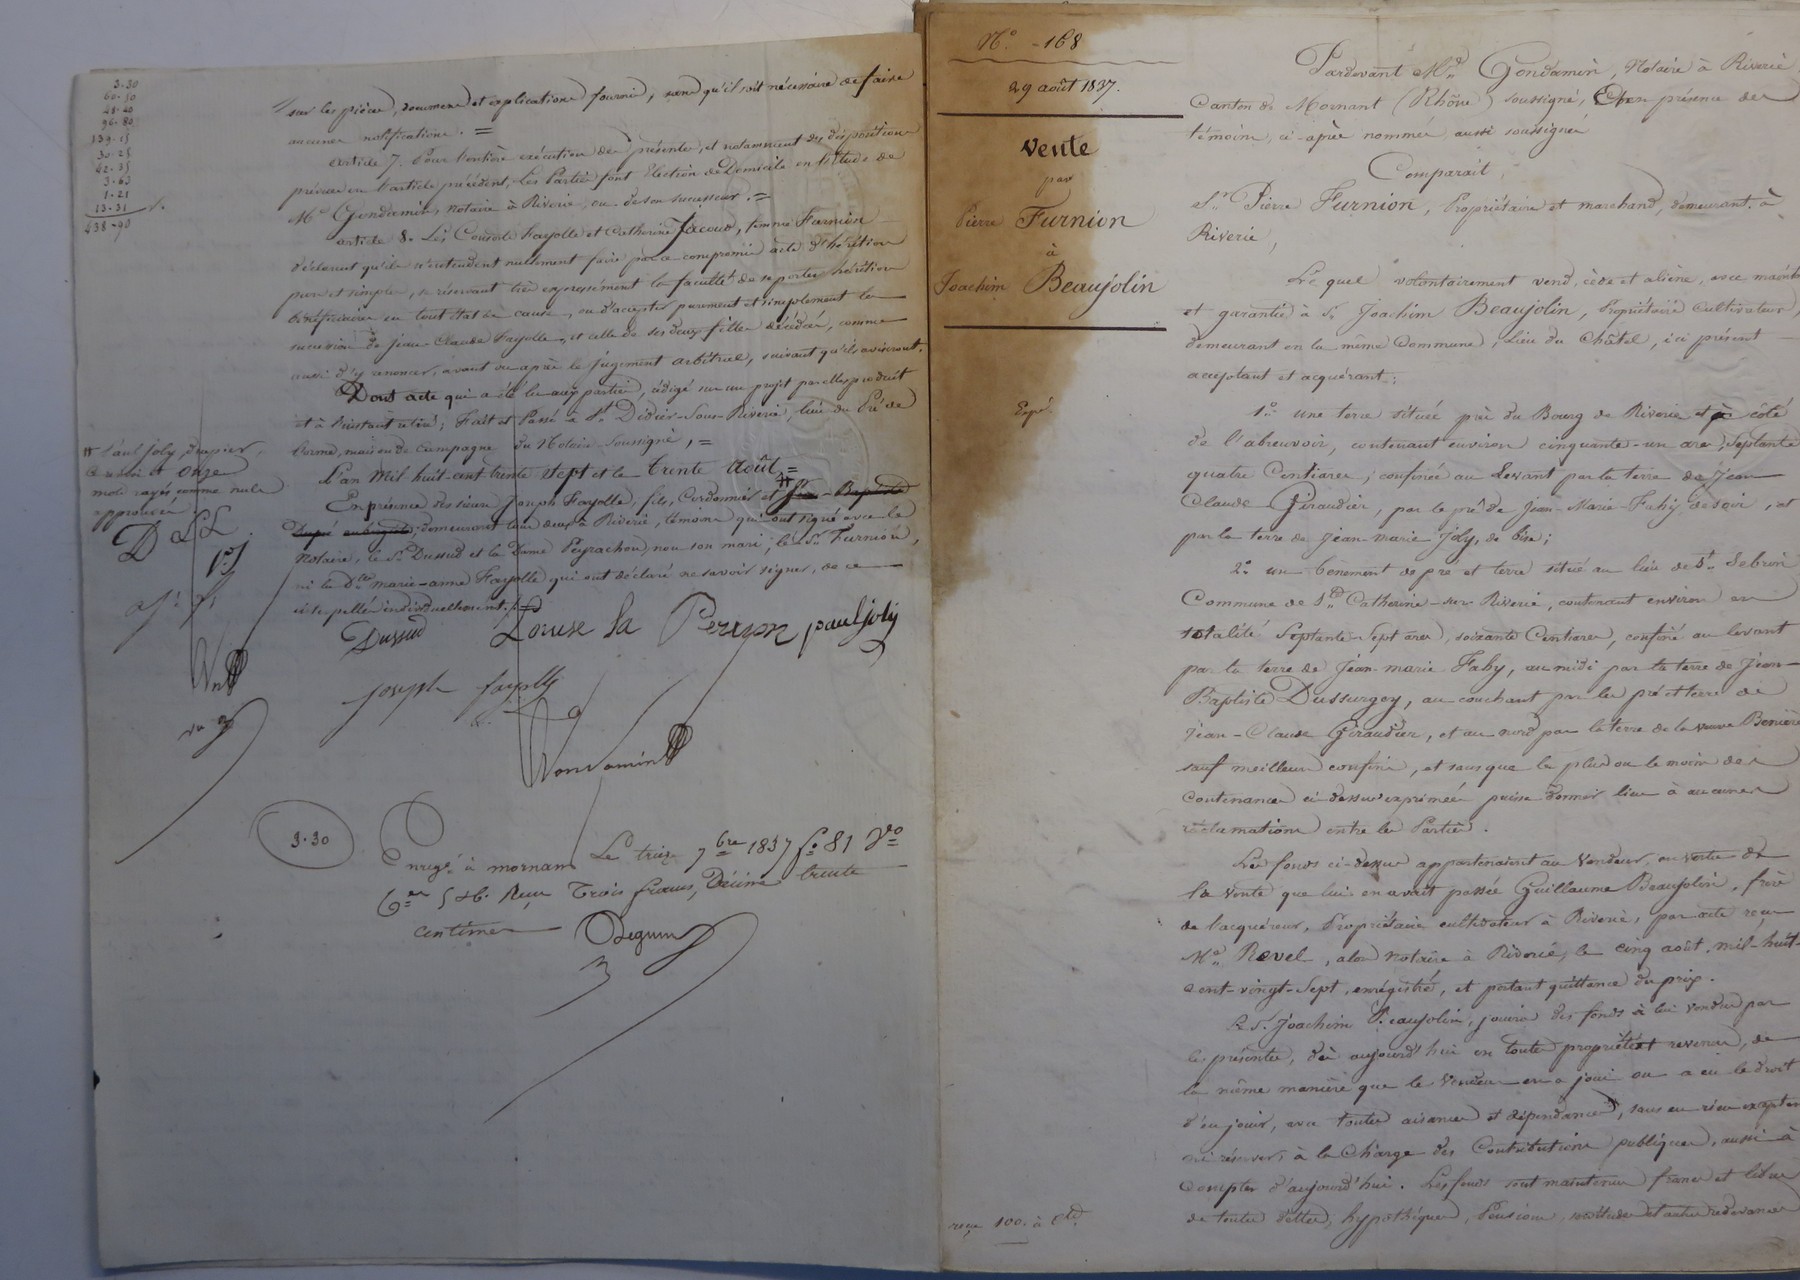 3-30
60-50
28-40
96-80
139-15
30-25
62-35
3-63
1-21
13-31
438-90
sur les pièces, documens et explications fournis, sans qu'il soit nécessaire de faire
aucunes notifications. =
article 7. Pour l'entière exécution des présentes, et notamment des dispositions
prévues en l'article précédent, les Parties font Election de Domicile en l'étude de
Me Gondamin, notaire à Riverie, ou de son successeur. =
article 8. Les Consorts Fayolle et Catherine Jacoud, femme Furnion
déclarent qu'ils n'entendent nullement faire par ce compromis acte d'héritiers
purs et simples, se réservant très expressément la faculté de se porter héritiers
bénéficiaires en tout état de cause, ou d'accepter purement et simplement les
succession de Jean-Claude Fayolle, et celle de ses deux filles décédées, comme
aussi d'y renoncer, avant ou après le jugement arbitral, suivant qu'ils aviseront.
Dont acte qui a été lu aux parties, rédigé sur un projet par elles produit
et à l'instant retiré; Fait et Passé à St. Didier-Sous-Riverie, lieu du Pré de
Lorme, maison de Campagne du Notaire soussigné, =
L'an Mil huit cent trente sept et le trente août =
En présence des sieurs Joseph Fayolle, fils, Cordonnier et Jean-Baptiste
Dupré aubergiste; demeurant tous deux à Riverie, témoins qui ont signé avec le
Notaire, le Sr. Dussud et la Dame Peyrachon, non son mari; le Sr. Furnion,
ni la Dlle marie-anne Fayolle qui ont déclaré ne savoir signer, de ce
interpellés individuellement.
# Paul Joly, drapier,
Ce renvoi et onze
mots rayés comme nuls
approuvés
D LL
P.J
Dussud Louise la Perupn paul joly
joseph fayolle
Gondamin
3-30
Enregé à mornant Le treize 7bre 1837 fo 81 Vo
Cen 5 et 6. Reçu Trois francs, Décime trente
centimes
No -168
29 août 1837.
Vente
par
Pierre Furnion
à
Joachim Beaujolin
Expé.
reçu 100. à Cte.
Pardevant Me Gondamin, Notaire à Riverie
Canton de Mornant (Rhône) soussigné, Et en présence des
témoins, ci-après nommés, aussi soussignés
Comparait,
Sr. Pierre Furnion, Propriétaire et marchand, demeurant à
Riverie,
Lequel volontairement vend, cède et aliène, avec maintenue
et garantie à Sr. Joachim Beaujolin, Propriétaire Cultivateur,
demeurant en la même Commune, lieu du Châtel, ici présent
acceptant et acquérant:
1o une terre située près du Bourg de Riverie et à côté
de l'abreuvoir, contenant environ cinquante-un ares, Septante
quatre Centiares; confinée au Levant par la terre de Jean
Claude Giraudier, par le pré de Jean-Marie Fahy, de soir, et
par la terre de Jean-marie Joly, de bise;
2o un tènement de pré et terre situé au lieu de St. Sebrin
Commune de Ste Catherine-sur-Riverie, contenant environ en
totalité Septante-Sept ares, soixante Centiares, confiné au levant
par la terre de Jean-marie Fahy, au midi par la terre de Jean-
Baptiste Dussurgey, au couchant par les pré et terre de
Jean-Claude Giraudier, et au nord par la terre de la veuve Bonière
sauf meilleurs confins, et sans que le plus ou le moins des
contenances ci-dessus exprimées puisse donner lieu à aucunes
réclamations entre les Parties.
Les fonds ci-dessus appartenaient au Vendeur, en vertu de
la vente que lui en avait passée Guillaume Beaujolin, frère
de l'acquéreur, Propriétaire cultivateur à Riverie, par acte reçu
Me Revel, alors notaire à Riverie, le cinq août, mil-huit-
cent-vingt-Sept, enregistré, et portant quittance du prix.
Le S. Joachim Beaujolin, jouira des fonds à lui vendus par
les présentes, dès aujourd'hui en toutes propriétés et revenus, de
la même manière que le Vendeur en a joui ou a eu le droit
d'en jouir, avec toutes aisances et dépendances, sans en rien excepter
ni réserver, à la Charge des Contributions publiques, aussi à
compter d'aujourd'hui. Les fonds sont maintenus francs et libres
de toutes dettes, hypothèques, Pensions, servitudes et autres redevances